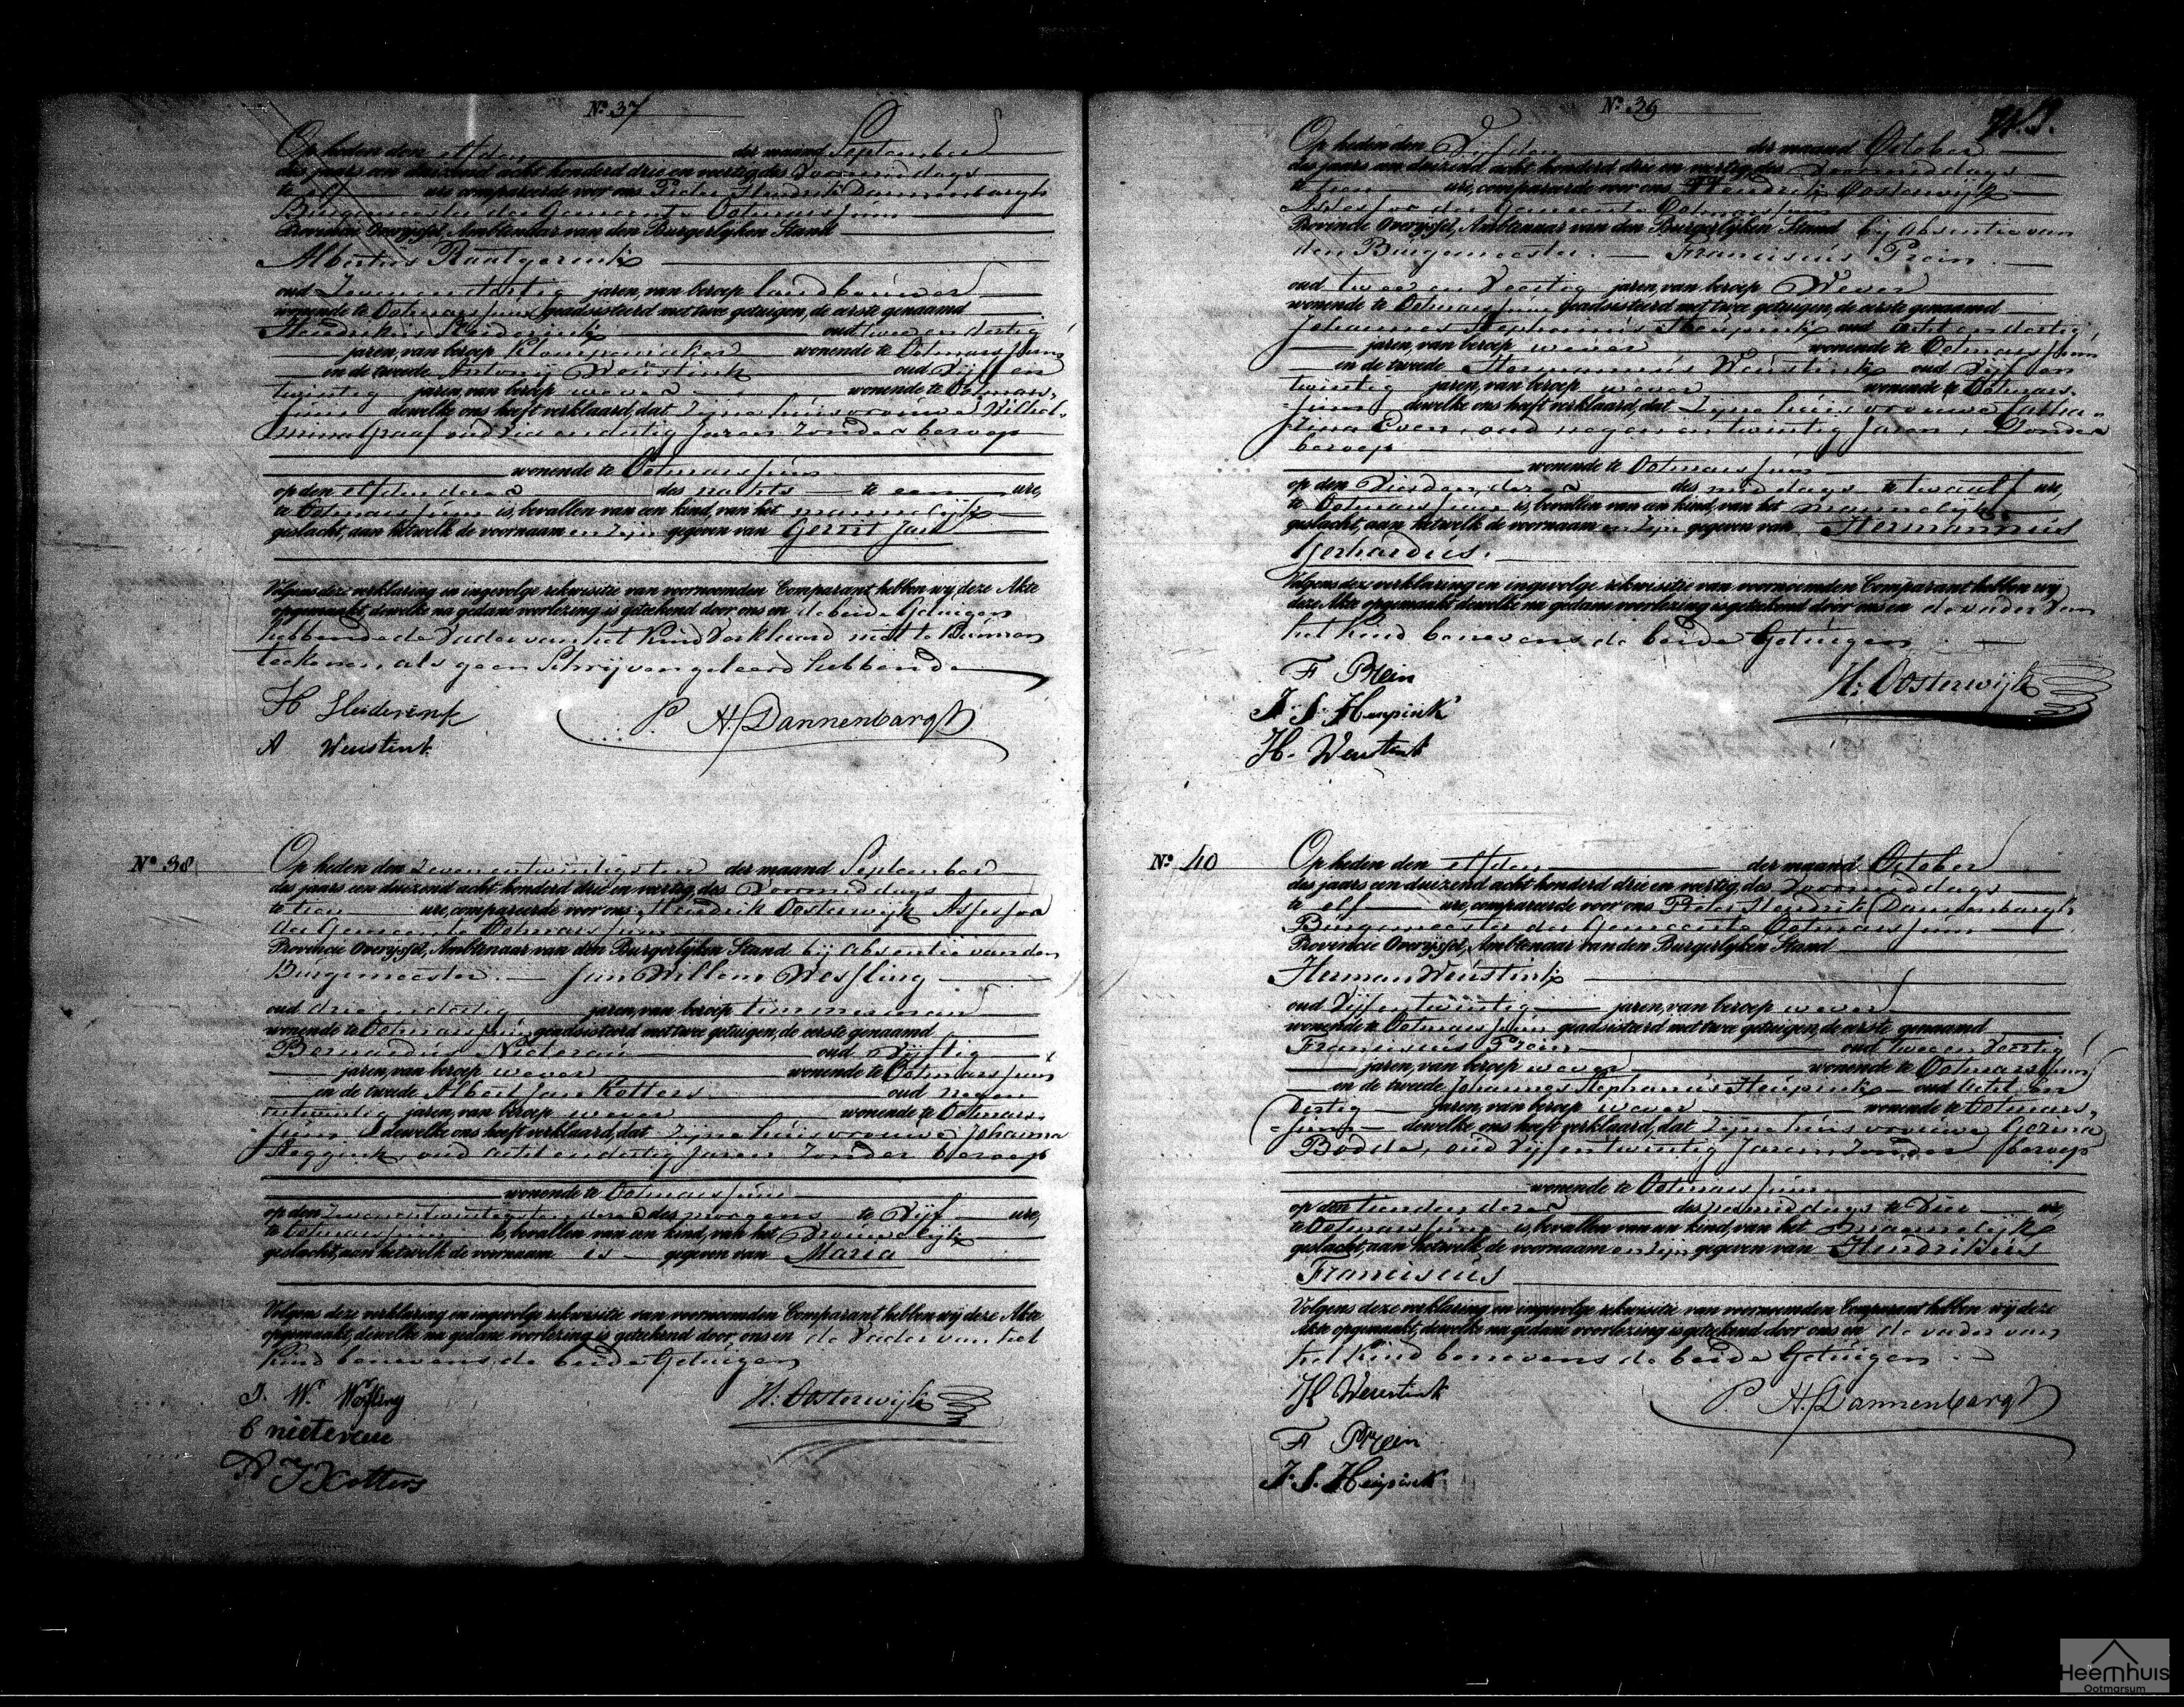 No. 37
Op heden den elfden der maand September
des jaars een duizend acht honderd drie en veertig des Voormiddags
te elf ure compareerde voor ons Peter Hendrik Dannenbargh
Burgemeester der Gemeente Ootmarssum
Provincie Overijssel, Ambtenaar van den Burgerlijken Stand
Albertus Raatgerink
oud Zevenendertig jaren, van beroep landbouwer
wonende te Ootmarssum geadsisteerd met twee getuigen, de eerste genaamd
Hendrikus oud twee en dertig
jaren, van beroep Klompenmaker wonende te Ootmarssum
en de tweede Antonij Weustink oud Vijf en
twintig jaren, van beroep wever wonende te Ootmars-
sum dewelke ons heeft verklaard, dat zijne huisvrouwe Wilhel-
mina oud en dertig Jaren Zonder beroep
wonende te Ootmarssum
op den elfden dezer des nachts te een ure,
te Ootmarssum is bevallen van een kind, van het mannelijk
geslacht, aan hetwelk de voornaam en zijn gegeven van Gerrit Jan
Volgens deze verklaring en ingevolge rekwisitie van voornoemden Comparant hebben wij deze Akte
opgemaakt, dewelke na gedane voorlezing is geteekend door ons en de beide Getuigen
hebbende de Vader van het Kind Verklaard niet te Kunnen
teekenen, als geen Schrijven geleerd hebbende
H
P. H. Dannenbargh
A Weustink
No. 38
Op heden den Zevenentwintigsten der maand September
des jaars een duizend acht honderd drie en veertig, des Voormiddags
te tien ure, compareerde voor ons Hendrik Oosterwijk Assessor
der Gemeente Ootmarssum
Provincie Overijssel, Ambtenaar van den Burgerlijken Stand bij absentie van den
Burgemeester. Jan Willem Wesfling
oud drie en dertig jaren, van beroep timmerman
wonende te Ootmarssum geadsisteerd met twee getuigen, de eerste genaamd
Bernardus Nieterau oud Vijftig
jaren, van beroep wever wonende te Ootmarssum
en de tweede Albert Jan Kotters oud negen
entwintig jaren, van beroep wever wonende te Ootmars-
sum dewelke ons heeft verklaard, dat zijne huisvrouwe Johanna
Reggink oud acht en dertig Jaren Zonder beroep
wonende te Ootmarssum
op den Zevenentwintigsten dezer des morgens te Vijf ure,
te Ootmarssum is bevallen van een kind, van het Vrouwelijk
geslacht, aan hetwelk de voornaam is gegeven van Maria
Volgens deze verklaring en ingevolge rekwisitie van voornoemden Comparant hebben wij deze Akte
opgemaakt, dewelke na gedane voorlezing is geteekend door ons en de Vader van het
Kind benevens de beide Getuigen
J. W. Wesfling
H: Oosterwijk
B nieterau
A J Kotters
No. 39
Op heden den Vijfden der maand October
des jaars een duizend acht honderd drie en veertig, des Voormiddags
te tien ure, compareerde voor ons Hendrik Oosterwijk
Assessor der Gemeente Ootmarssum
Provincie Overijssel, Ambtenaar van den Burgerlijken Stand bij absentie van
den Burgemeester. Franciscus Prein
oud twee en Veertig jaren, van beroep Wever
wonende te Ootmarssum geadsisteerd met twee getuigen, de eerste genaamd
Johannes Stephanus Heupink oud acht en dertig
jaren, van beroep wever wonende te Ootmarssum
en de tweede Hermannus Weustink oud Vijf en
twintig jaren, van beroep wever wonende te Ootmars-
sum dewelke ons heeft verklaard, dat zijne huisvrouwe Catha-
rina Even, oud negen en twintig Jaren, Zonder
beroep
wonende te Ootmarssum
op den Vierden dezer des middags te twaalf ure,
te Ootmarssum is bevallen van een kind, van het mannelijk
geslacht, aan hetwelk de voornaam en zijn gegeven van Hermannus
Gerhardus.
Volgens deze verklaring en ingevolge rekwisitie van voornoemden Comparant hebben wij
deze Akte opgemaakt, dewelke na gedane voorlezing is geteekend door ons en de vader Van
het Kind benevens de beide Getuigen
F Prein
H: Oosterwijk
J. S. Heupink
H. Weustink
No. 40
Op heden den elfden der maand October
des jaars een duizend acht honderd drie en veertig, des Voormiddags
te elf ure, compareerde voor ons Peter Hendrik Dannenbargh
Burgemeester der Gemeente Ootmarssum
Provincie Overijssel, Ambtenaar van den Burgerlijken Stand
Herman Weustink
oud Vijfentwintig jaren, van beroep wever
wonende te Ootmarssum geadsisteerd met twee getuigen, de eerste genaamd
Franciscus Prein oud twee en Veertig
jaren, van beroep wever wonende te Ootmarssum
en de tweede Johannes Stephanus Heupink oud Acht en
Dertig jaren, van beroep wever wonende te Ootmars-
sum dewelke ons heeft verklaard, dat zijne huisvrouwe Gezina
Bodde, oud Vijf entwintig Jaren, Zonder beroep
wonende te Ootmarssum
op den tienden dezer des namiddags te Vier ure
te Ootmarssum is bevallen van een kind, van het mannelijk
geslacht, aan hetwelk de voornaam en zijn gegeven van Hendrikus
Franciscus
Volgens deze verklaring en ingevolge rekwisitie van voornoemden Comparant hebben wij deze
Akte opgemaakt, dewelke na gedane voorlezing is geteekend door ons en de vader van
het Kind benevens de beide Getuigen
H Weustink
P. H. Dannenbargh
F Prein
J. S. Heupink
Heemhuis
Ootmarsum